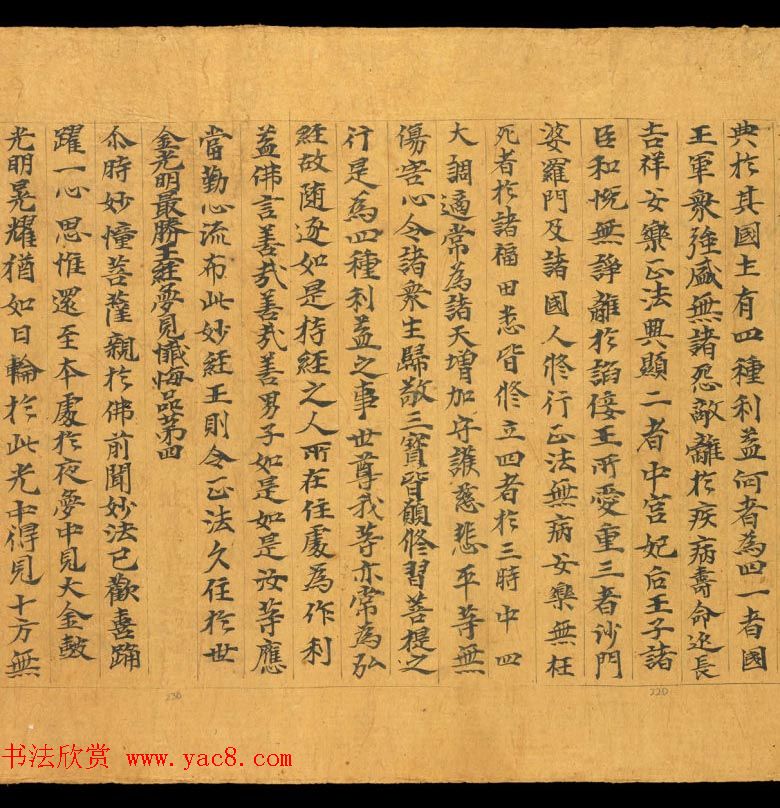 典於其國主有四種利益何者為四一者國
王軍衆強盛無諸怨敵離於疾病壽命延長
吉祥安樂正法興顯二者中宮妃后王子諸
臣和悅無諍離於諂佞王所愛重三者沙門
婆羅門及諸國人修行正法無病安樂無枉
死者於諸福田悉皆修立四者於三時中四
大調適常為諸天增加守護慈悲平等無
傷害心令諸衆生歸敬三寶皆願修習菩提之
行是為四種利益之事世尊我等亦常為弘
經故隨逐如是持經之人所在住處為作利
益佛言善哉善哉善男子如是如是汝等應
當勤心流布此妙經王則令正法久住於世
金光明最勝王經夢見懺悔品第四
尒時妙憧菩薩親於佛前聞妙法已歡喜踊
躍一心思惟還至本處於夜夢中見大金鼓
光明晃耀猶如日輪於此光中得見十方無
230
220
书法欣赏 www.yac8.com